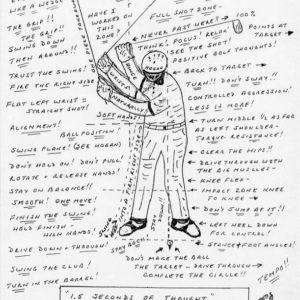 LIKE A WEDGE
THE GRIP!!
THE GRIP!!
SWING DOWN
THEN AROUND!!
TRUST THE SWING!
FIRE THE RIGHT SIDE
FLAT LEFT WRIST =
STRAIGHT SHOT!
ALIGNMENT!
BALL POSITION!
SWING PLANE! (BEN HOGAN)
DON'T HOLD ON! DON'T PULL!
ROTATE + RELEASE HANDS!
STAY ON BALANCE!!
SMOOTH! ONE MOVE!
FINISH THE SWING!
HOLD FINISH -
HIGH HANDS!
DRIVE DOWN + THROUGH!
SWING THE CLUB!
TURN IN THE BARREL!
HAVE I
WORKED ON
THIS
ZONE?
SOFT HANDS!
NATURALLY
HOGAN
SWING
STAY BACK
FULL SHOT ZONE-
NEVER PAST HERE!!
100%
POINTS AT
TARGET
THINK! FOCUS! RELAX!
SEE THE SHOT!
POSITIVE GOLF THOUGHTS!
BACK TO TARGET
TURN!! DON'T SWAY!!
CONTROLLED AGGRESSION!
LESS IS MORE!
TURN MIDDLE ½ AS FAR
AS LEFT SHOULDER-
TORQUE RESISTANCE!
CLEAR THE HIPS!!
DRIVE THROUGH WITH THE
BIG MUSCLES-
KNEE FLEX-
IMPACT ZONE KNEE
TO KNEE
DON'T JUMP AT IT!!
LEFT HEEL DOWN
FOR CONTROL!
STANCE + FOOT ANGLES!
DON'T MAKE THE BALL
THE TARGET - DRIVE THROUGH
COMPLETE THE CIRCLE!!
TEMPO!!
"1.5 SECONDS OF THOUGHT"